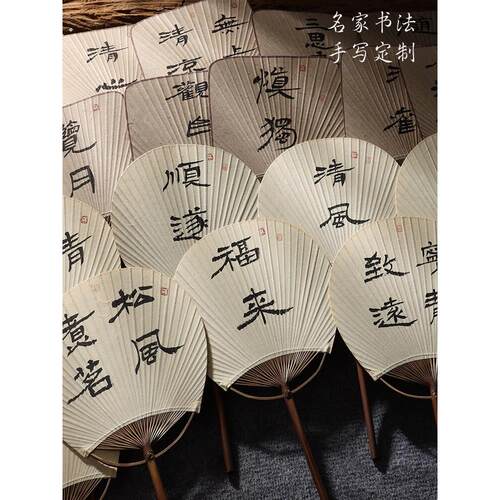 名家书法
手写定制
清
清凉
無上
三思
覽月
觀自
慎獨
順遂
清風
松風
煮茗
福来
寧
致遠